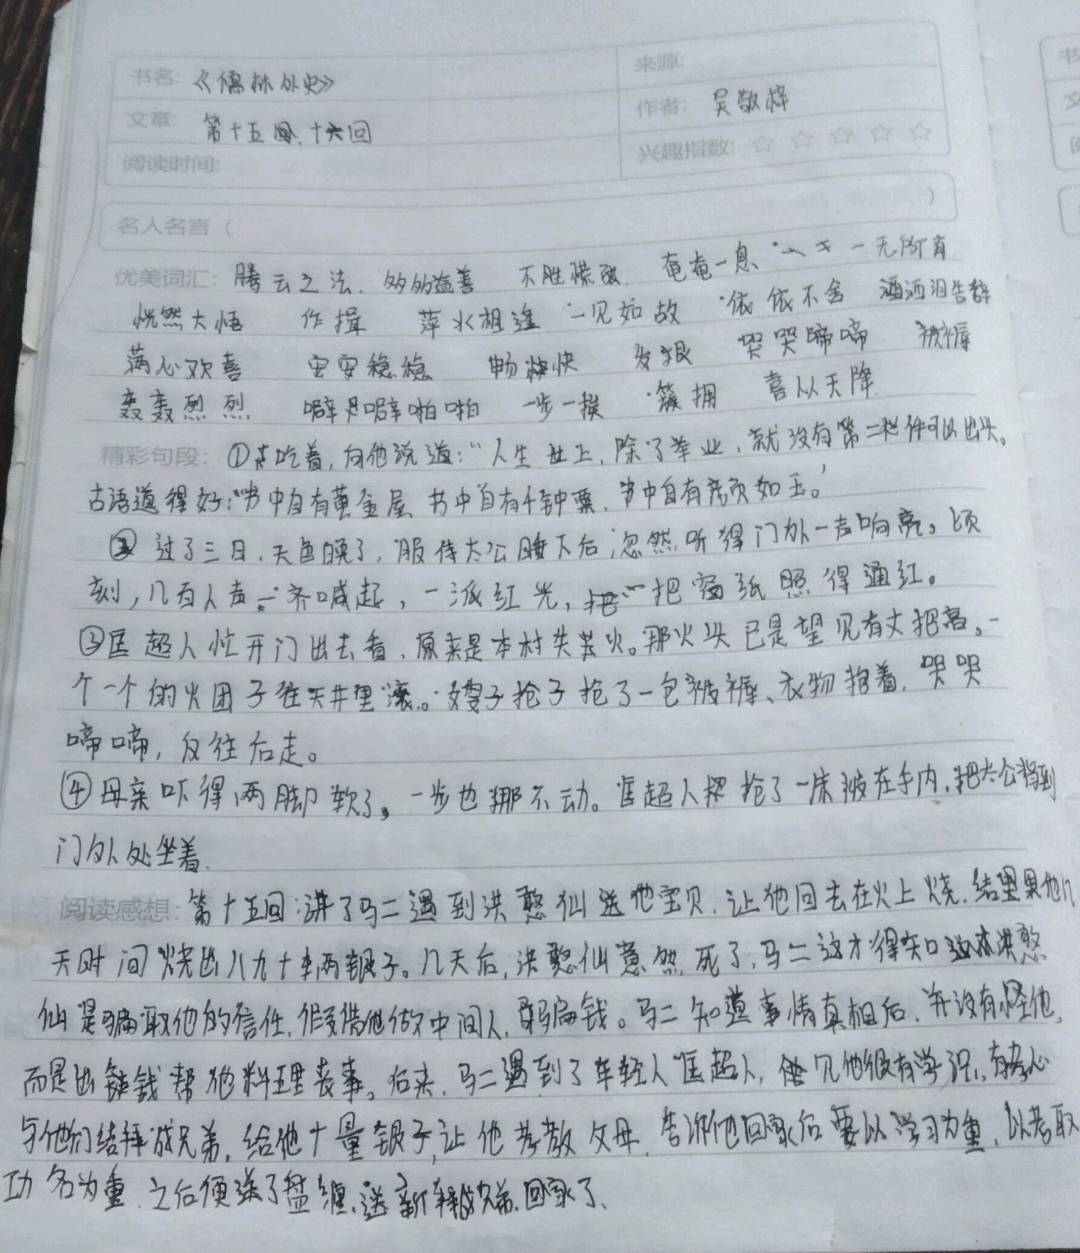 书名: 《儒林外史》 来源:
文章: 第十五回、十六回 作者: 吴敬梓
阅读时间: 兴趣指数: ☆ ☆ ☆ ☆ ☆
名人名言 ( )
优美词汇: 腾云之法、多多益善 不胜 奄奄一息 一无所有
恍然大悟 作揖 萍水相逢 一见如故 依依不舍 洒洒泪告辞
满心欢喜 安安稳稳 畅快 发狠 哭哭啼啼 被褥
轰轰烈烈 噼噼啪啪 一步一挨 簇拥 喜从天降
精彩句段: ①吃着,向他说道:“人生世上,除了举业,就没有第二件可以出头。
古语道得好:“书中自有黄金屋 书中自有千钟粟,书中自有颜如玉。’
② 过了三日,天色晚了,服侍太公睡下后,忽然听得门外一声响亮。顷
刻,几百人声一齐喊起,一派红光,把窗纸照得通红。
③匡超人忙开门出去看,原来是本村失火。那火头已是望见有丈把高,一
个一个的火团子往天井里滚。嫂子抢了一包被褥、衣物抱着,哭哭
啼啼,反往后走。
④母亲吓得两脚软了,一步也挪不动。匡超人抢了一床被在手内,把太公背到
门外处坐着.
阅读感想: 第十五回:讲了马二遇到洪憨仙送他宝贝,让他回去在火上烧,结果他几
天时间烧出八九十两银子。几天后,洪憨仙意然死了,马二这才得知洪憨
仙是骗取他的信任,假借他做中间人,骗钱。马二知道事情真相后,并没有怪他,
而是出钱帮他料理丧事。后来,马二遇到了年轻人匡超人,见他很有学识,
与他们结拜成兄弟,给他十量银子,让他孝敬父母,告诉他回家后要以学习为重,以考取
功名为重,之后便送了盘缠,送新兄弟回家了、